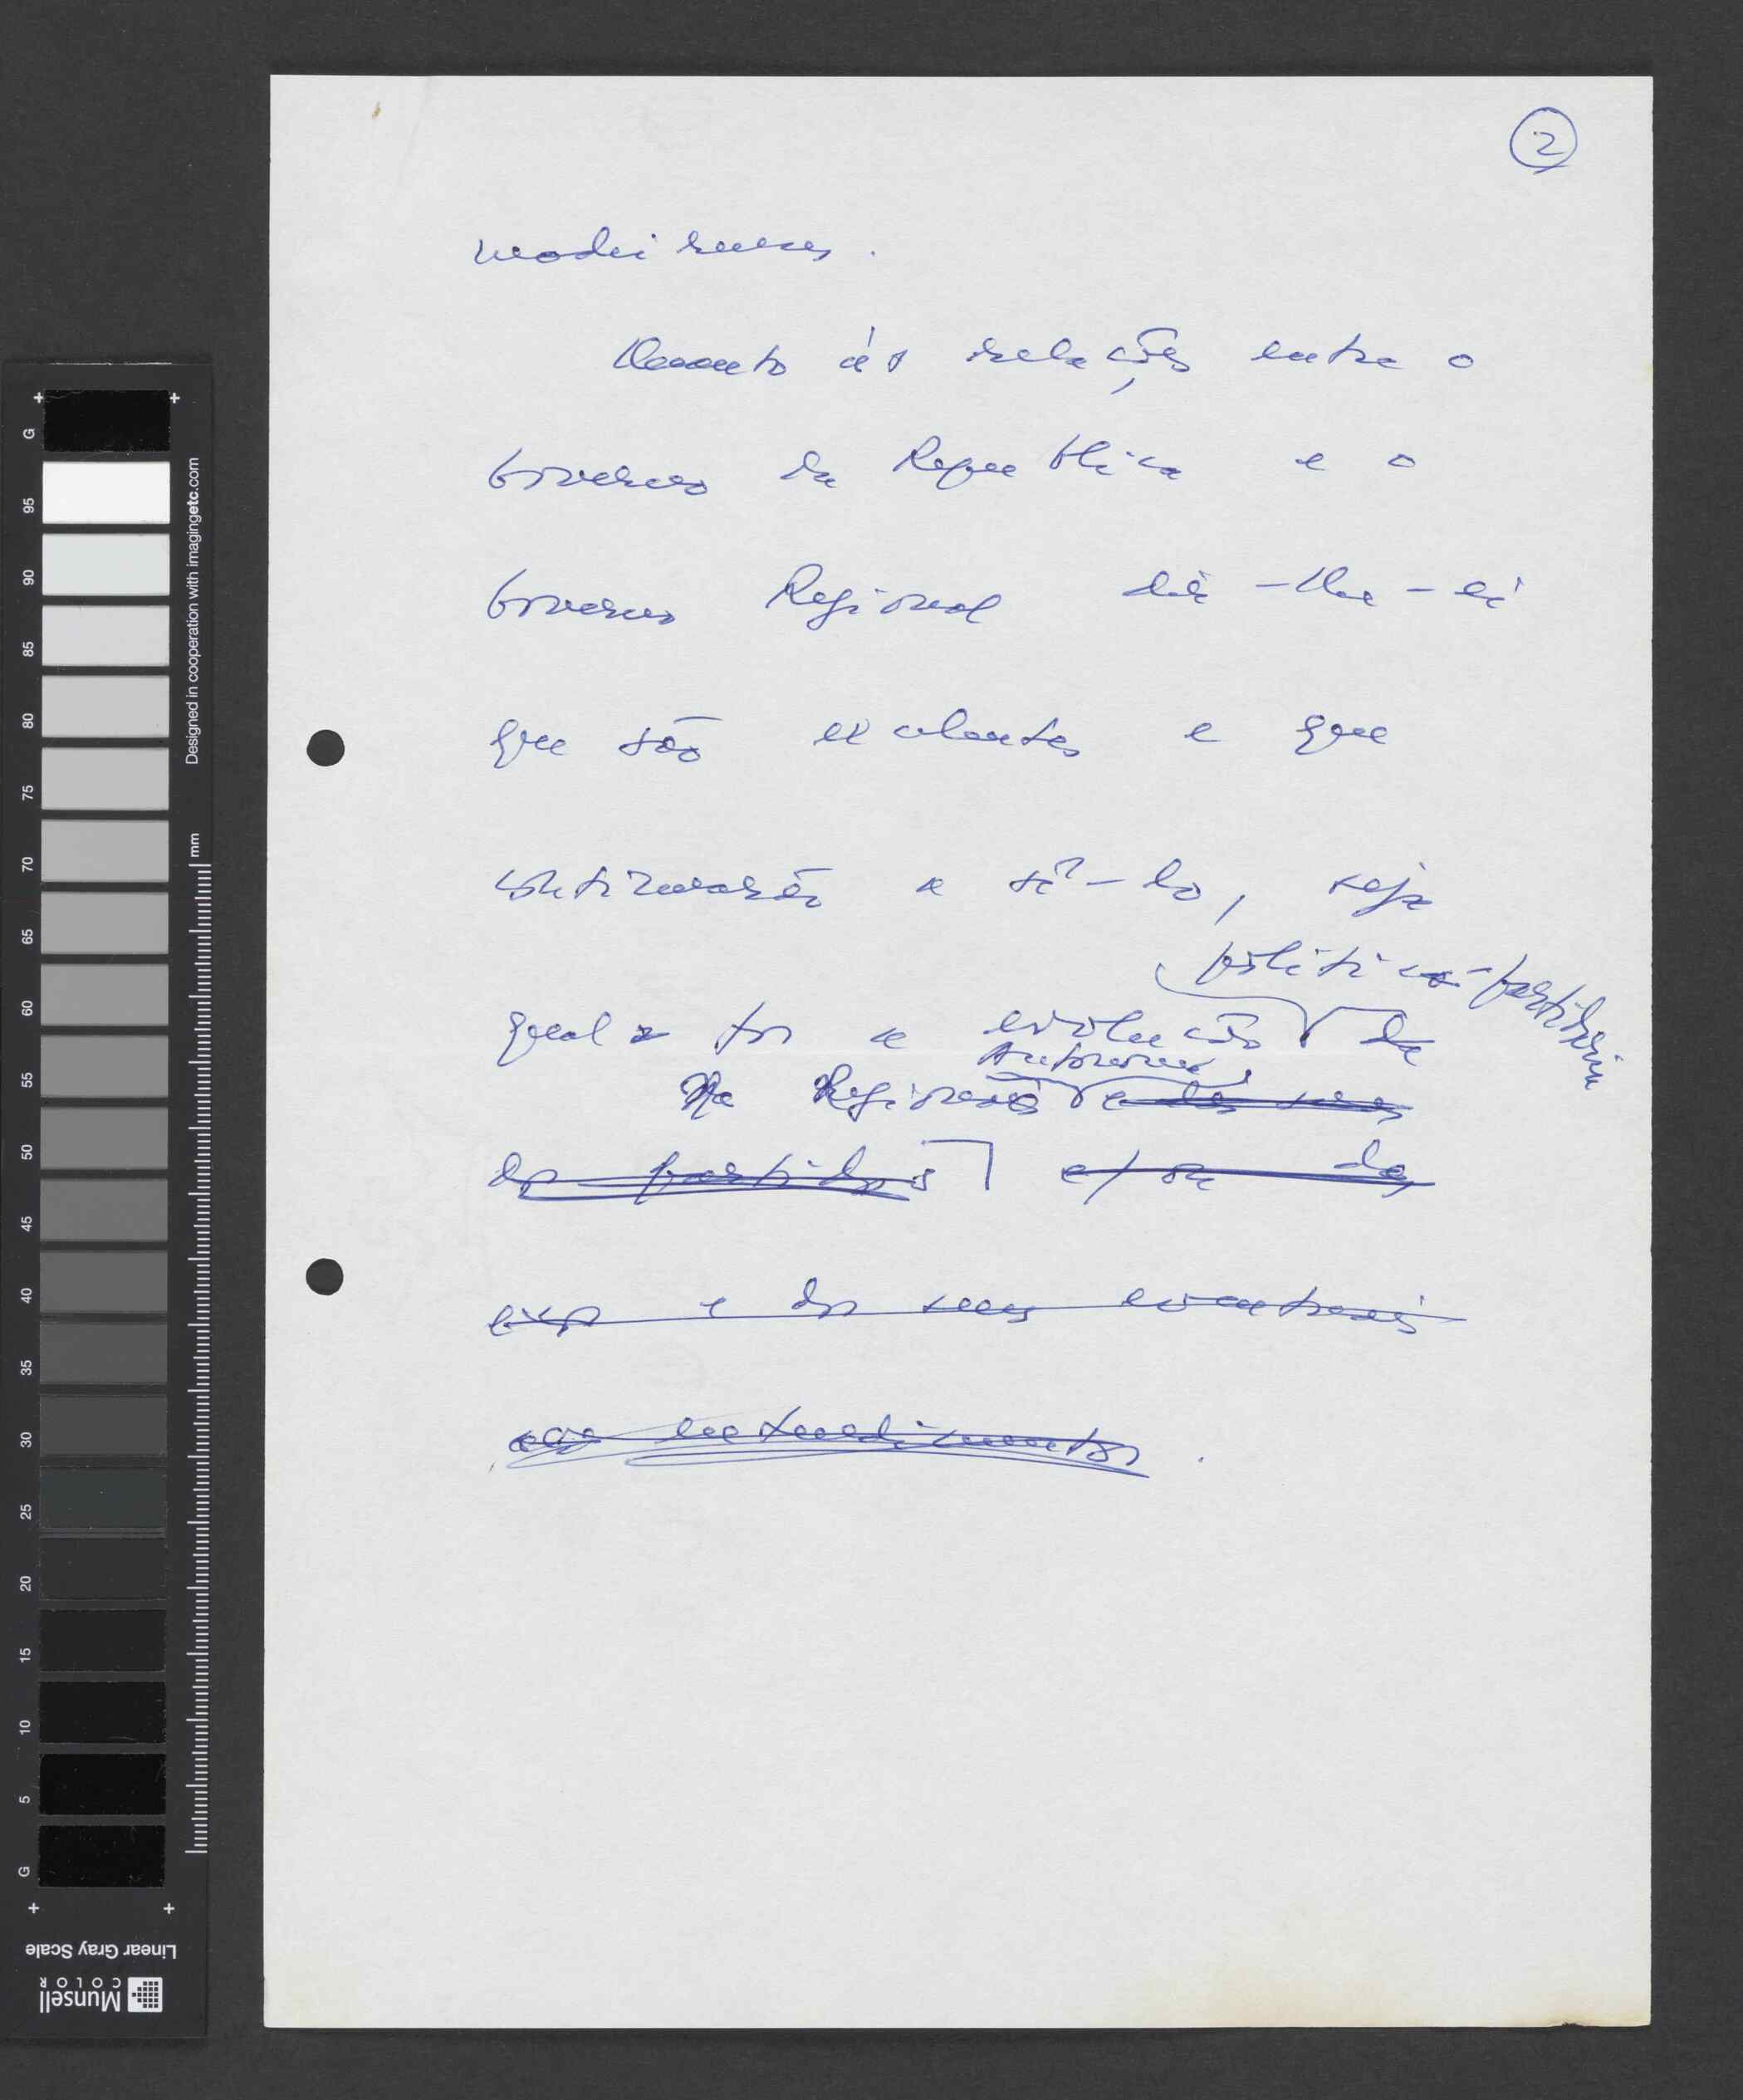 2
madeirenses.
Quanto às relações entre o
Governo da República e o
Governo Regional dir-lhe-ei
que são excelentes e que
continuarão a sê-lo, seja
político-partidária
qual for a evolução da
Autónoma
Na Região e dos seus
dos partidos e/ou das
e dos seus eventuais
entendimentos.
+ +
G 95 90 85 80 75 70 65 60 55 50 45 40 35 30 25 20 15 10 5 G
Designed in cooperation with imagingetc.com
mm
+ +
Linear Gray Scale
Munsell
COLOR